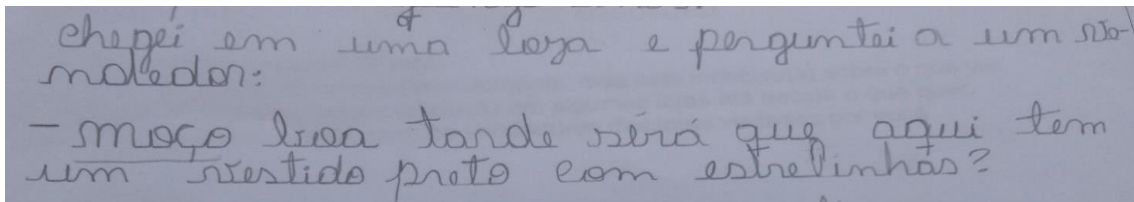 chegei em uma loja e perguntei a um vo-
modedor:
- moço boa tarde será que aqui tem
um vestido preto com estrelinhas?